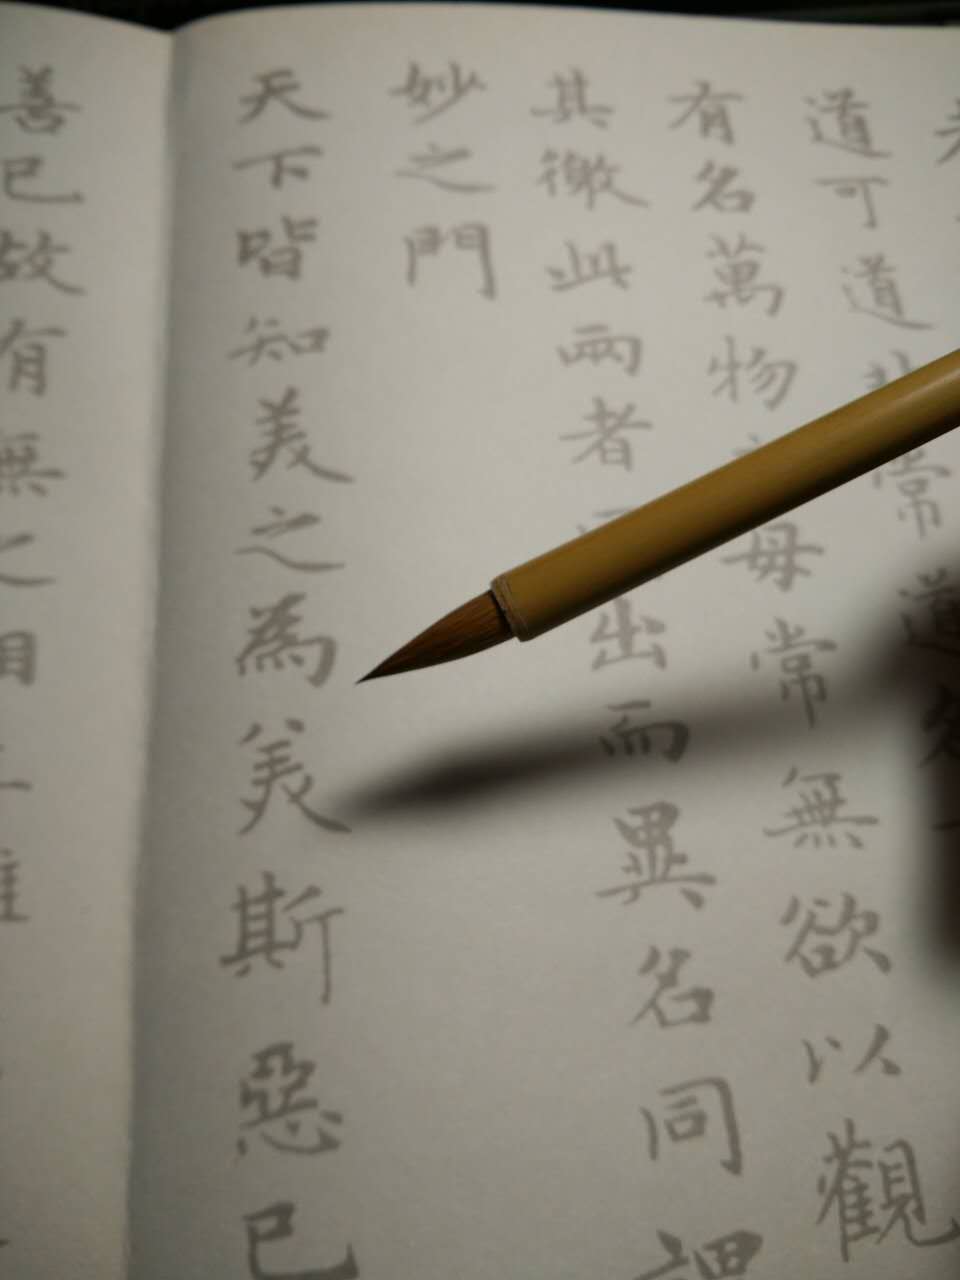 道可道非常道
有名萬物母常無欲以觀
其徼此兩者出而異名同謂
妙之門
天下皆知美之為美斯惡已
善已故有無之相生難